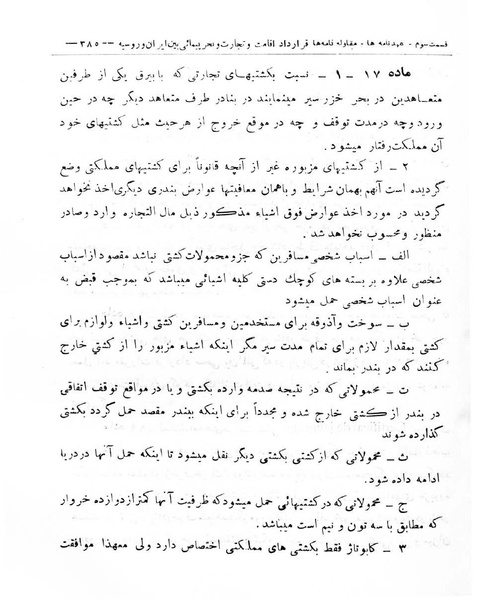 قسمت سوم - عهدنامه ها - مقاوله نامه ها قرارداد اقامت و تجارت و بحرپیمائی بین ایران و روسیه -- ۳۸۵ --
ماده ۱۷ - ۱ - نسبت بکشتیهای تجارتی که بابیرق یکی از طرفین
متعاهدین در بحر خزر سیر مینمایند در بنادر طرف متعاهد دیگر چه در حین
ورود و چه در مدت توقف و چه در موقع خروج از هر حیث مثل کشتیهای خود
آن مملکت رفتار میشود.
۲ - از کشتیهای مزبوره غیر از آنچه قانوناً برای کشتیهای مملکتی وضع
گردیده است آنهم بهمان شرایط و باهمان معافیتها عوارض بندری دیگری اخذ نخواهد
گردید در مورد اخذ عوارض فوق اشیاء مذکور ذیل مال التجاره وارد و صادر
منظور و محسوب نخواهد شد.
الف - اسباب شخصی مسافرین که جزو محمولات کشتی نباشد مقصود از اسباب
شخصی علاوه بر بسته های کوچک دستی کلیه اشیائی میباشد که بموجب قبض به
عنوان اسباب شخصی حمل میشود
ب - سوخت و آذوقه برای مستخدمین و مسافرین کشتی و اشیاء ولوازم برای
کشتی بمقدار لازم برای تمام مدت سیر مگر اینکه اشیاء مزبور را از کشتی خارج
کنند که در بندر بماند.
ت - محمولاتی که در نتیجه صدمه وارده بکشتی و یا در مواقع توقف اتفاقی
در بندر از کشتی خارج شده و مجدداً برای اینکه ببندر مقصد حمل گردد بکشتی
گذارده شوند
ث - محمولاتی که از کشتی بکشتی دیگر نقل میشود تا اینکه حمل آنها در دریا
ادامه داده شود.
ج - محمولاتی که در کشتیهائی حمل میشود که ظرفیت آنها کمتر از دوازده خروار
که مطابق با سه تون و نیم است میباشد.
۳ - کابوتاژ فقط بکشتی های مملکتی اختصاص دارد ولی معهذا موافقت